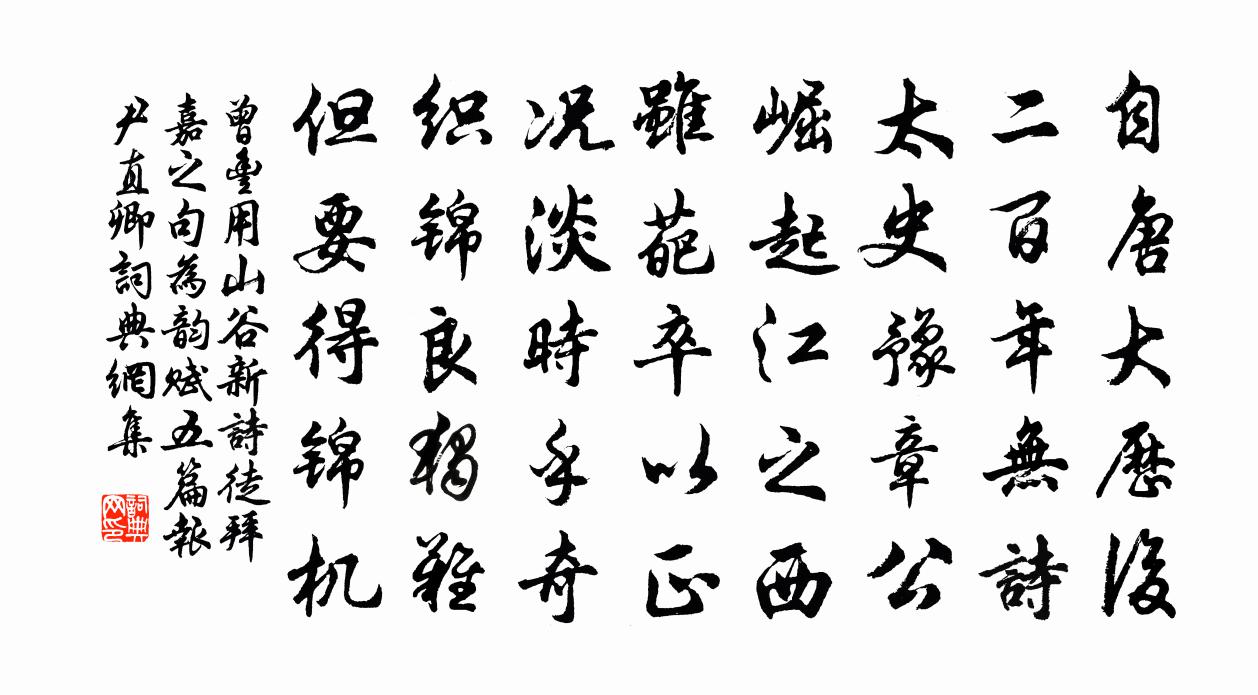 自唐大歷後
二百年無詩
太史豫章公
崛起江之西
雖葩卒以正
况淡時乎奇
织锦良獨難
但要得锦机
曾豊用山谷新詩徒拜
嘉之句為韵赋五篇報
尹直卿詞典網集